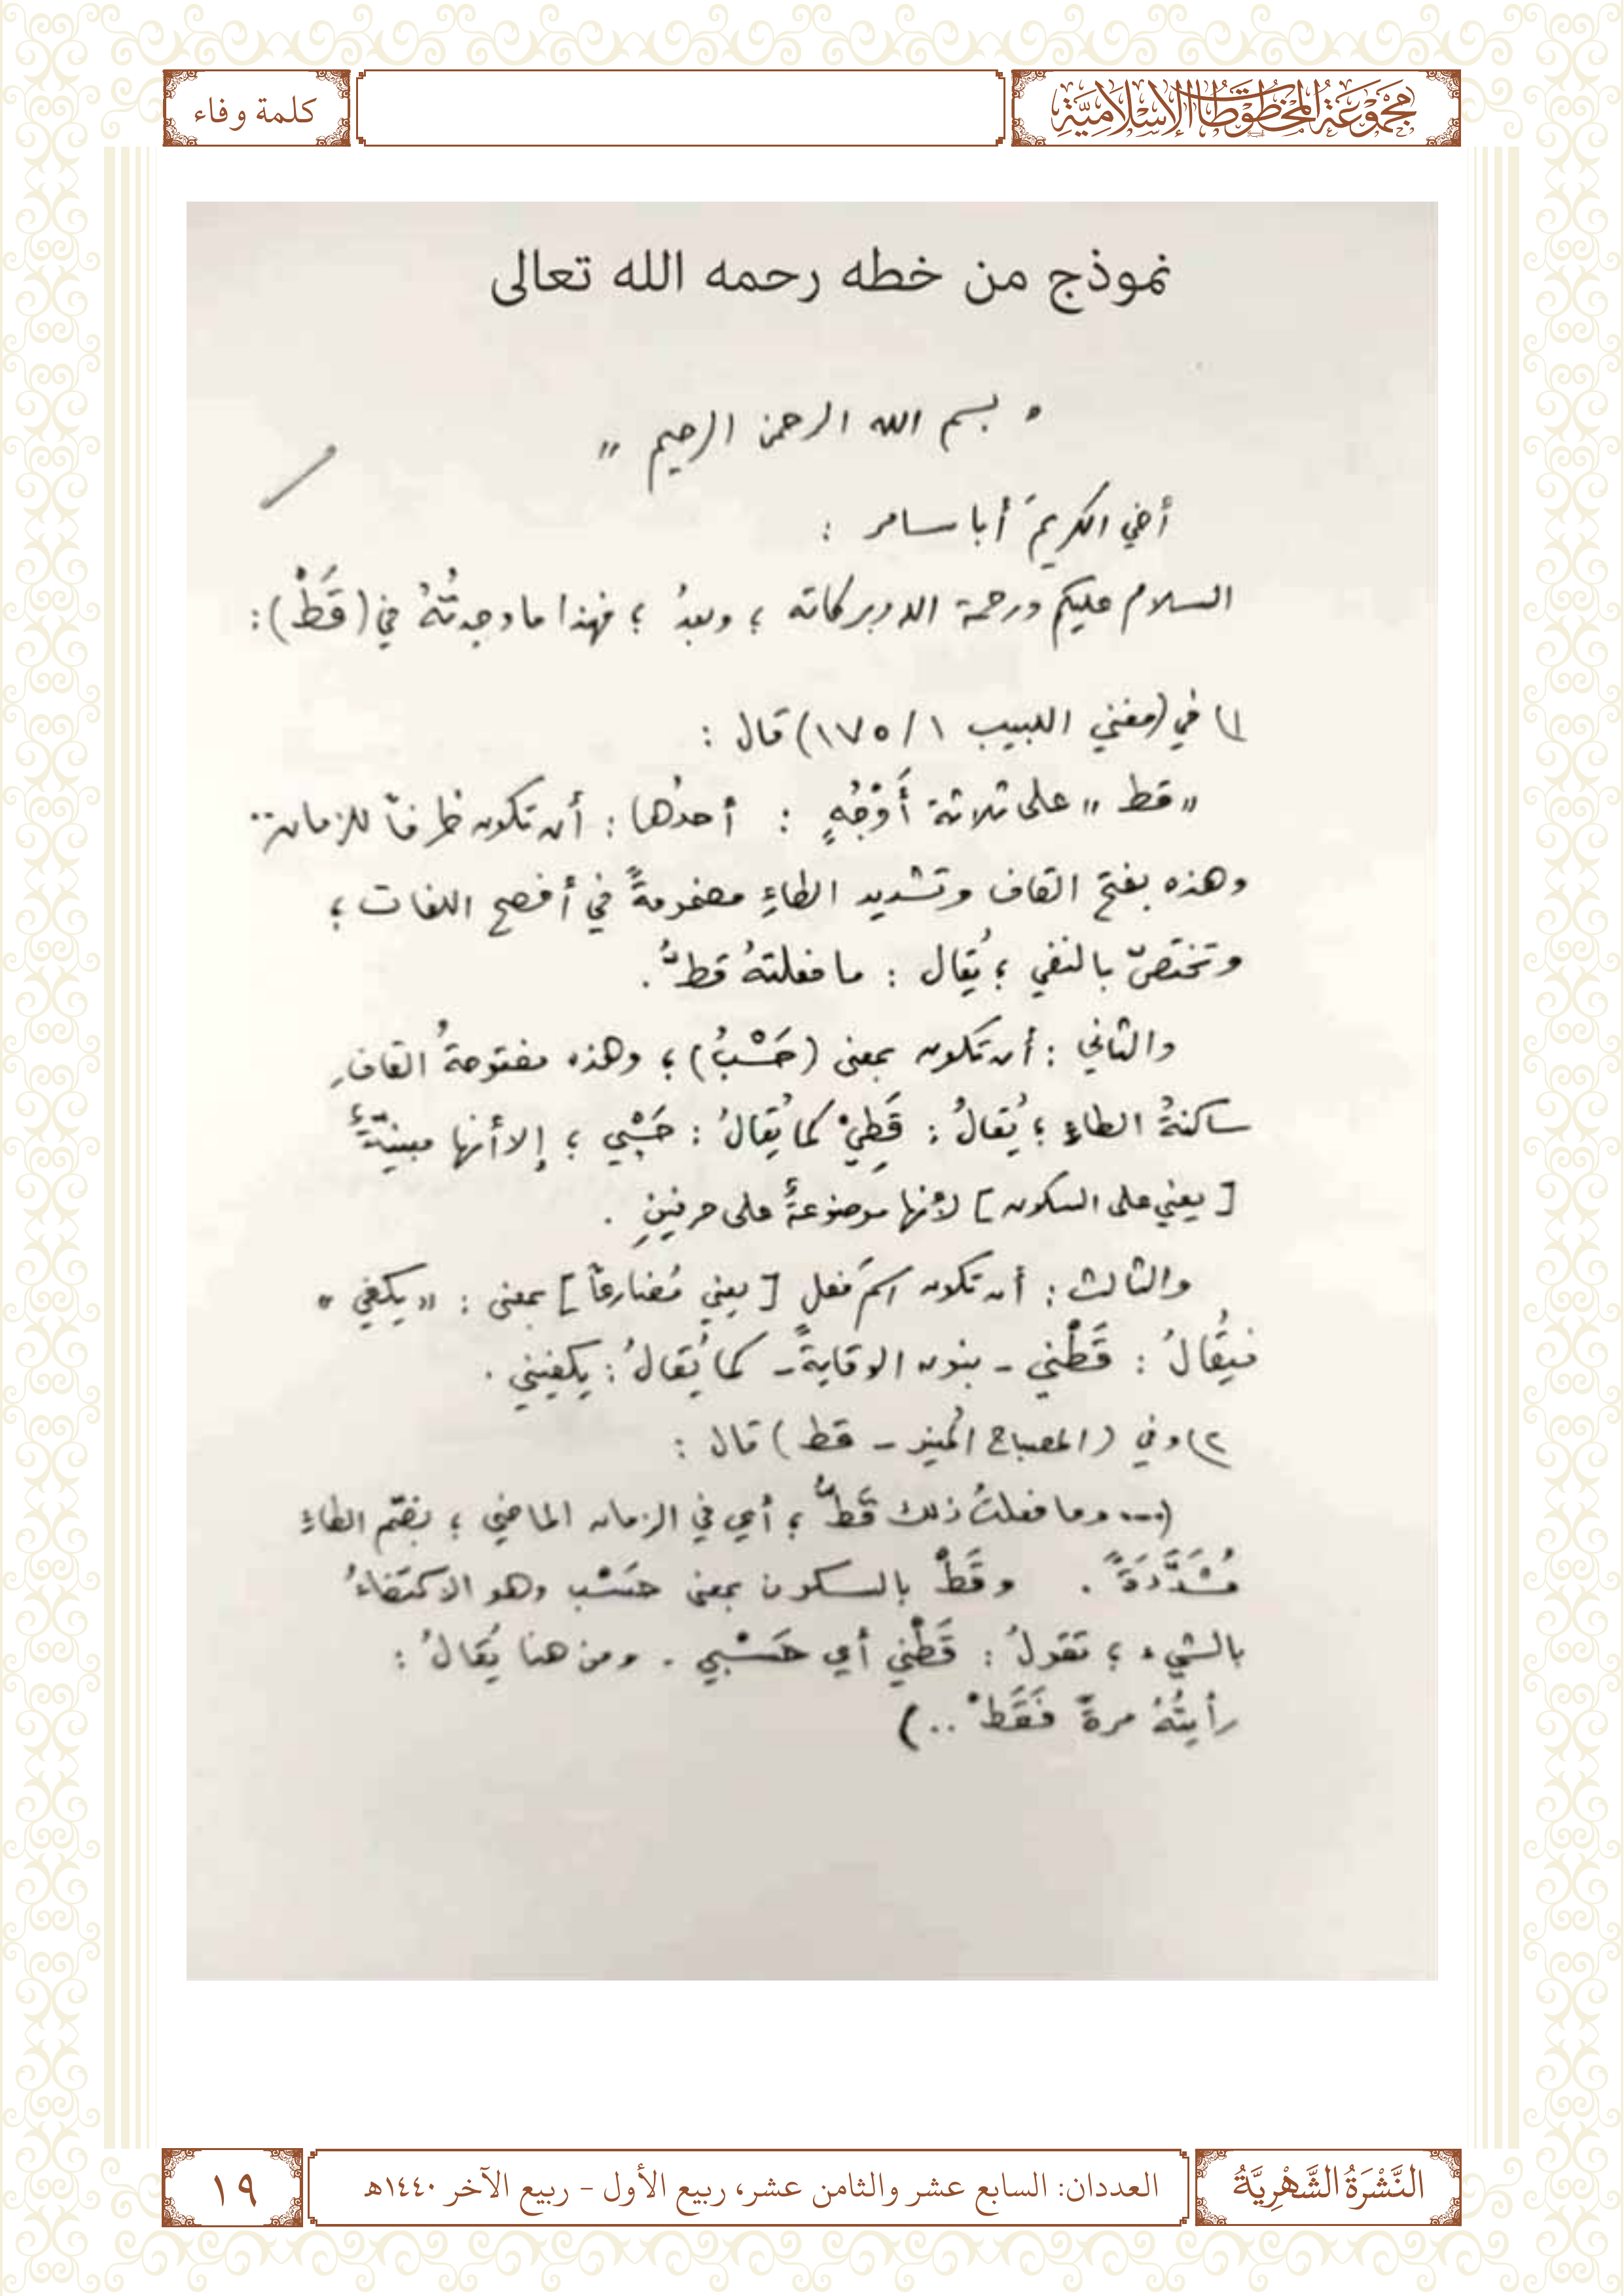 مَجْمُوْعَةُ المَخْطُوْطَاتِ الإِسْلَامِيَّةِ
كلمة وفاء
نموذج من خطه رحمه الله تعالى
" بسم الله الرحمن الرحيم "
أخي الكريمَ أبا سامر :
السلام عليكم ورحمة الله وبركاته ؛ وبعدُ ؛ فهذا ما وجدتُّهُ في (قَطْ) :
١) في (مغني اللبيب ١/ ١٧٥) قال :
" قط " على ثلاثة أَوْجُهٍ : أحدُها : أن تكون ظرفاً للزمان ..
وهذه بفتح القاف وتشديد الطاءِ مضمومةً في أفصح اللغات ؛
وتختصّ بالنفي ؛ يُقال : ما فعلتهُ قطُّ .
والثاني : أن تكون بمعنى (حَسْبُ) ؛ وهذه مفتوحةُ القافِ
ساكنةُ الطاءِ ؛ يُقالُ : قَطِيْ كما يُقالُ : حَسْبِي ؛ إلا أنها مبنيّةٌ
[ يعني على السكون ] لأنها موضوعةٌ على حرفينِ .
والثالث : أن تكون اسمَ فعلٍ [ يعني مُضارعاً ] بمعنى : " يكفي "
فيُقالُ : قَطْني - بنون الوقايةً - كما يُقالُ : يكفيني .
٢) وفي (المصباح المُنير - قط) قال :
(... وما فعلتُ ذلك قَطُّ ؛ أي في الزمان الماضي ؛ بضمّ الطاءِ
مُشَدَّدَةً . وقَطْ بالسكون بمعنى حَسْب وهو الاكتفاءُ
بالشيء ؛ تقولُ : قَطْني أي حَسْبي . ومن هنا يُقالُ :
رأيتُهُ مرةً فَقَطْ ..)
النَّشْرَةُ الشَّهْرِيَّةُ
العددان: السابع عشر والثامن عشر، ربيع الأول - ربيع الآخر ١٤٤٠هـ
١٩